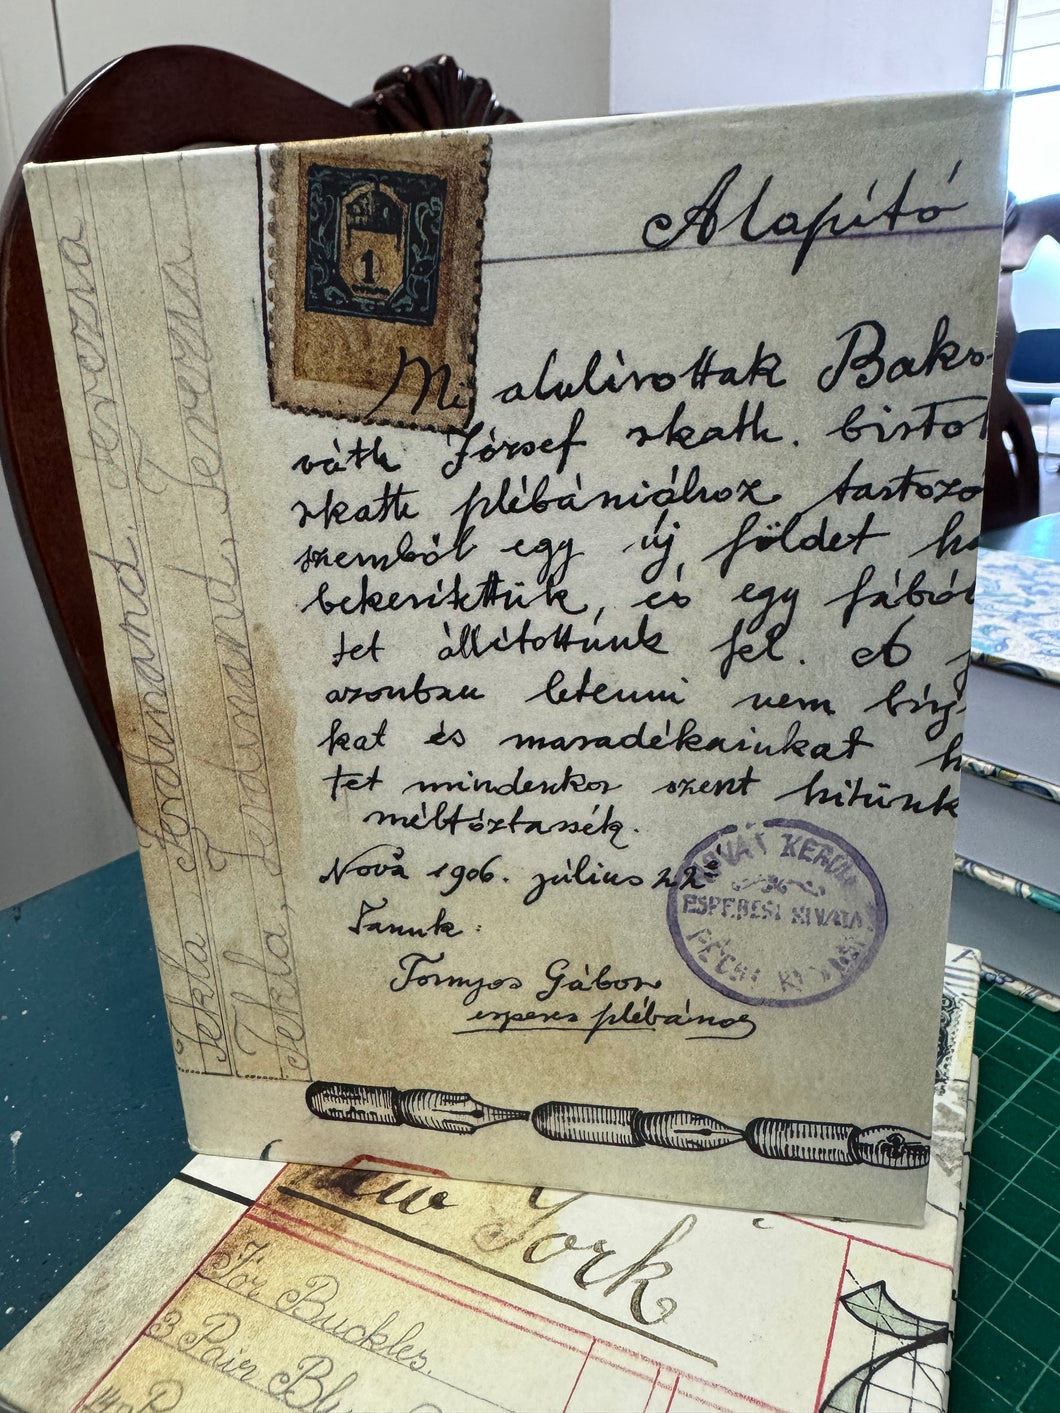 Alapító
1
Mi alulírottak Baks-
váth József rkath. bisto
rkath plébániához tartozó
szemből egy új földet ha
bekerítettük, és egy fábó
tet állítottunk fel.
azonban letenni nem bírj
kat és maradékainkat h
tet mindenkor szent hitünk
méltóztassék.
Nova 1906. július 22
Tanuk:
Tornyos Gábor
esperes plébános
NOVAI KERÜL
ESPERESI HIVATAL
Tekla, Ferdinand, Terezia
Tekla, Ferdinand, Terezia
York
For Buckles.
3 Pair